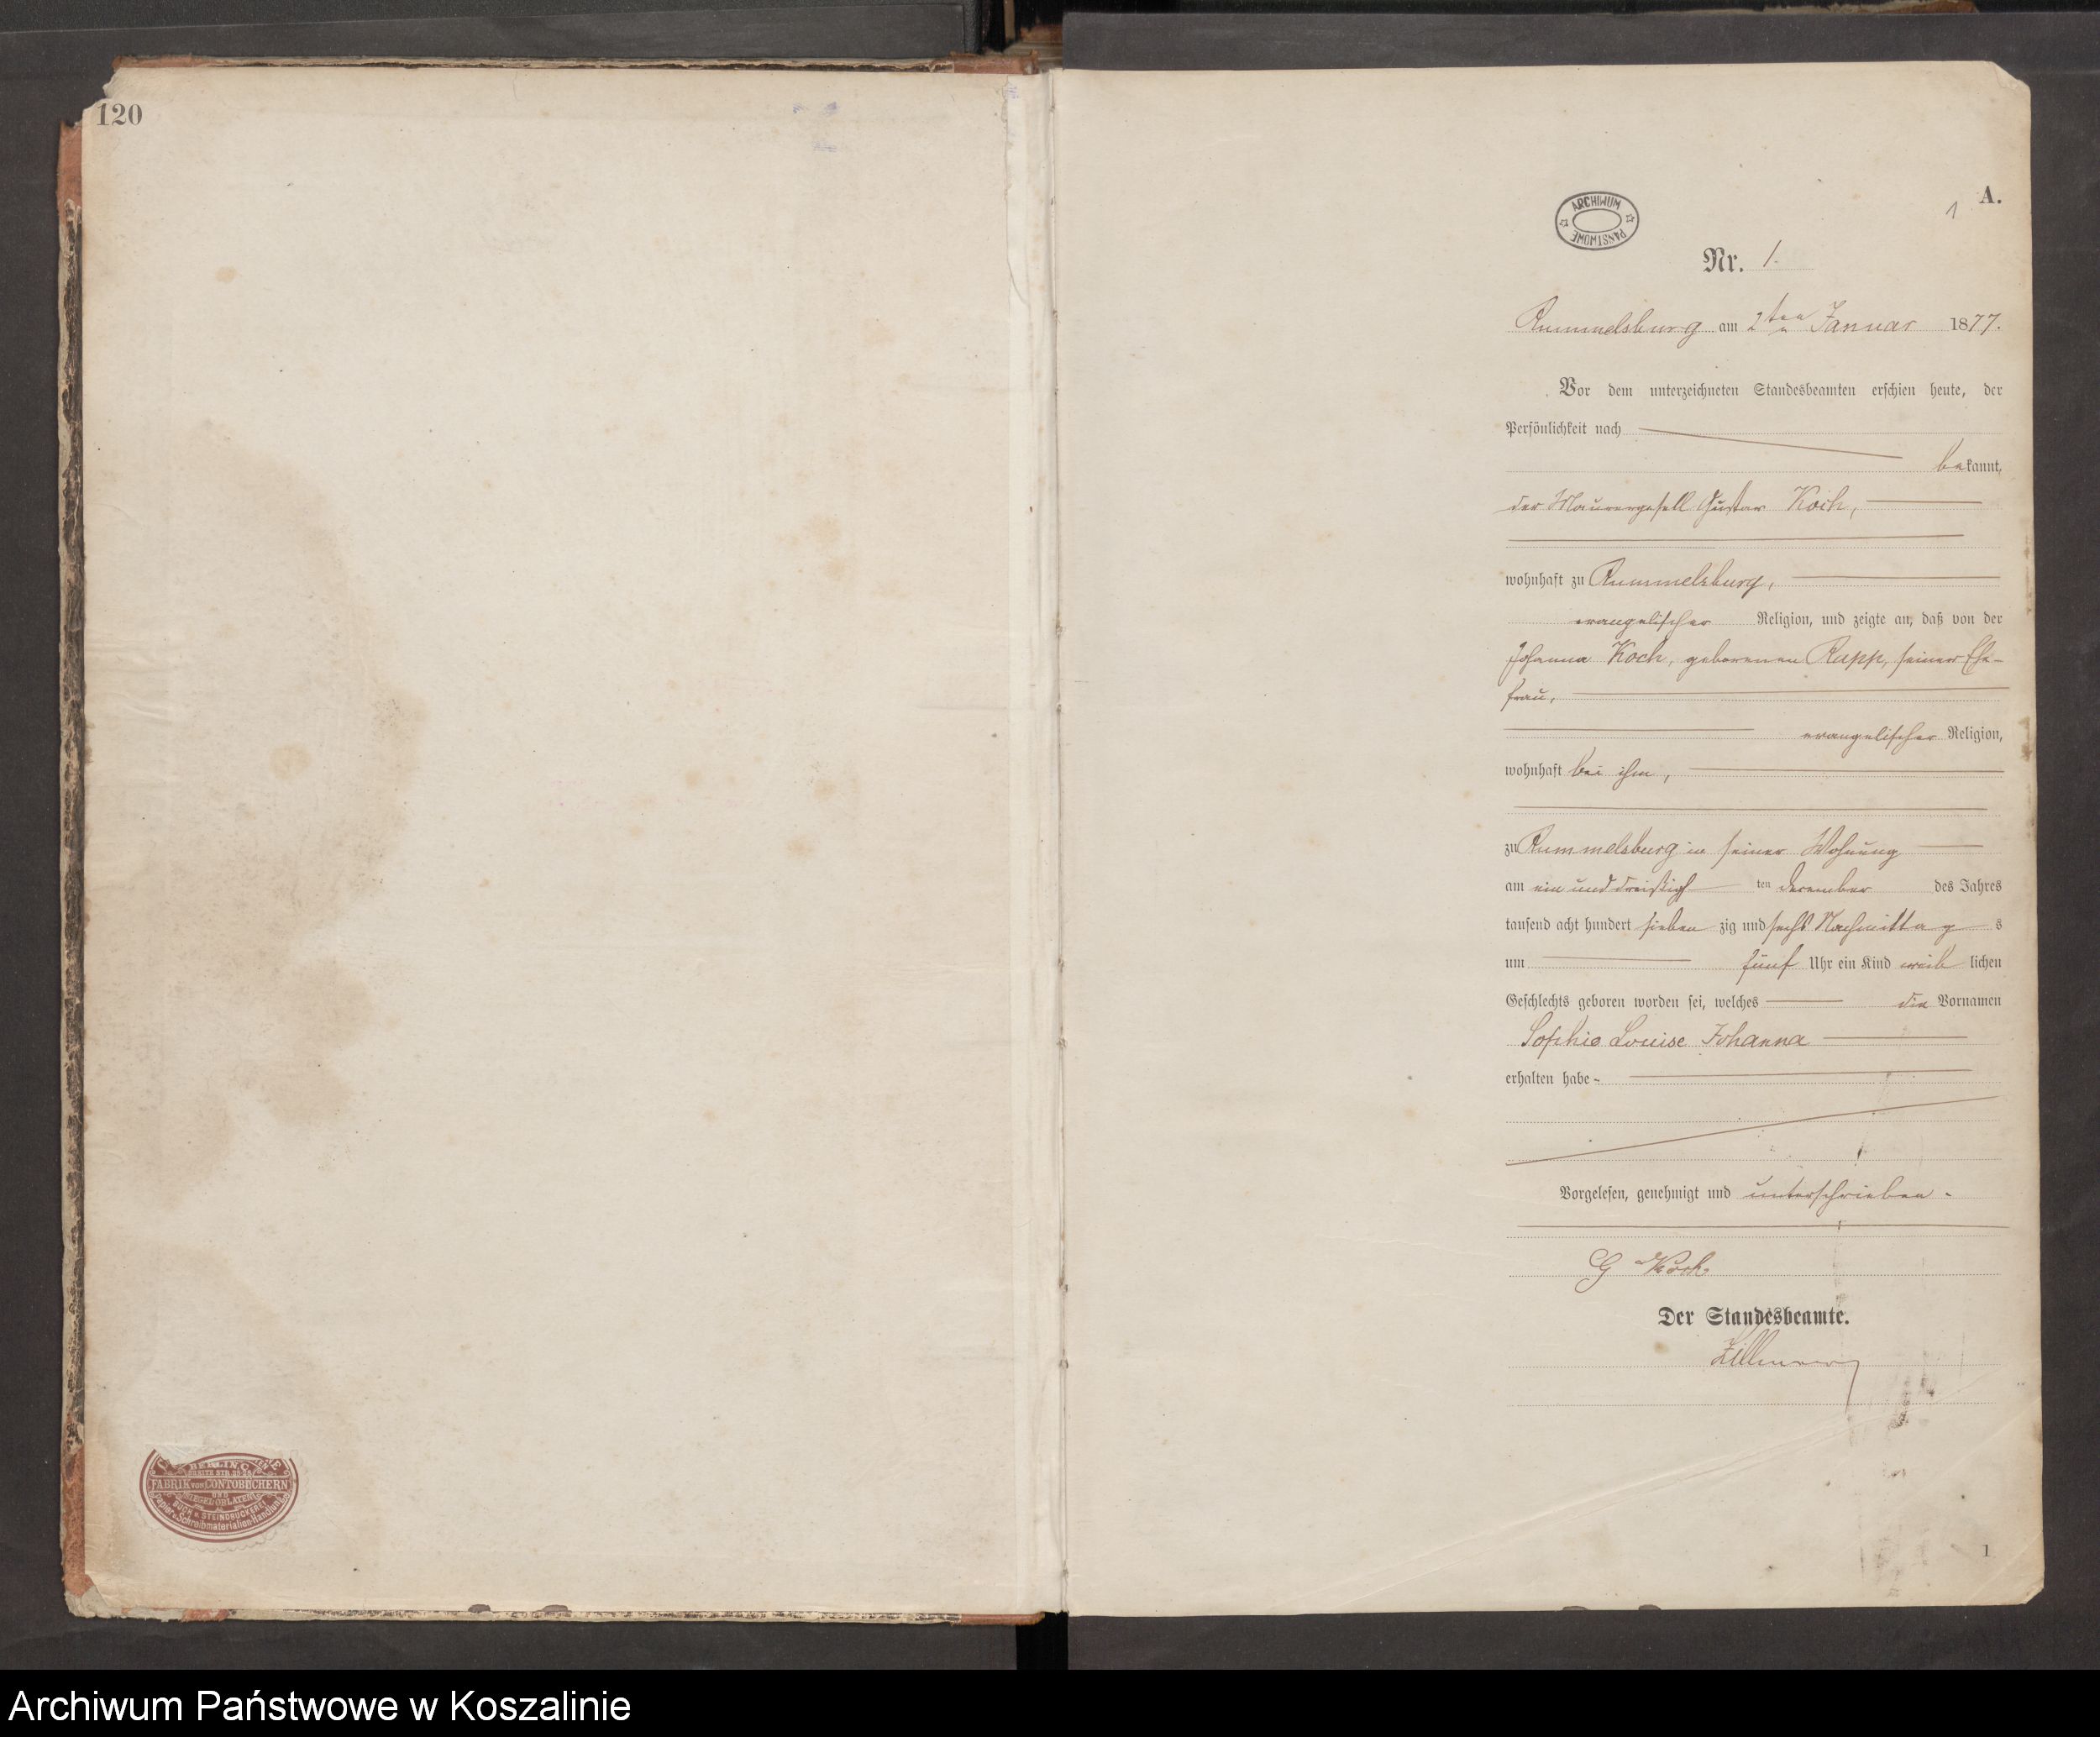 120
A.
1
ARCHIWUM PAŃSTWOWE
Nr. 1.
Rummelsburg am 2ten Januar 1877.
Vor dem unterzeichneten Standesbeamten erschien heute, der
Persönlichkeit nach
bekannt,
der Maurergesell Gustav Koch,
wohnhaft zu Rummelsburg,
evangelischer Religion, und zeigte an, daß von der
Johanna Koch, geborenen Rapp, seiner Ehe-
frau,
evangelischer Religion,
wohnhaft bei ihm,
zu Rummelsburg in seiner Wohnung
am ein und dreißigsten December des Jahres
tausend acht hundert siebenzig und sechs Nachmittags
um fünf Uhr ein Kind weiblichen
Geschlechts geboren worden sei, welches die Vornamen
Sophie Louise Johanna
erhalten habe-
Vorgelesen, genehmigt und unterschrieben-
G Koch
Der Standesbeamte.
BERLIN C.
BREITE STR.
FABRIK VON CONTOBÜCHERN
UND
SIEGEL-OBLATEN
BUCH U. STEINDRUCKEREI
Papier u. Schreibmaterialien-Handlung
1
Archiwum Państwowe w Koszalinie